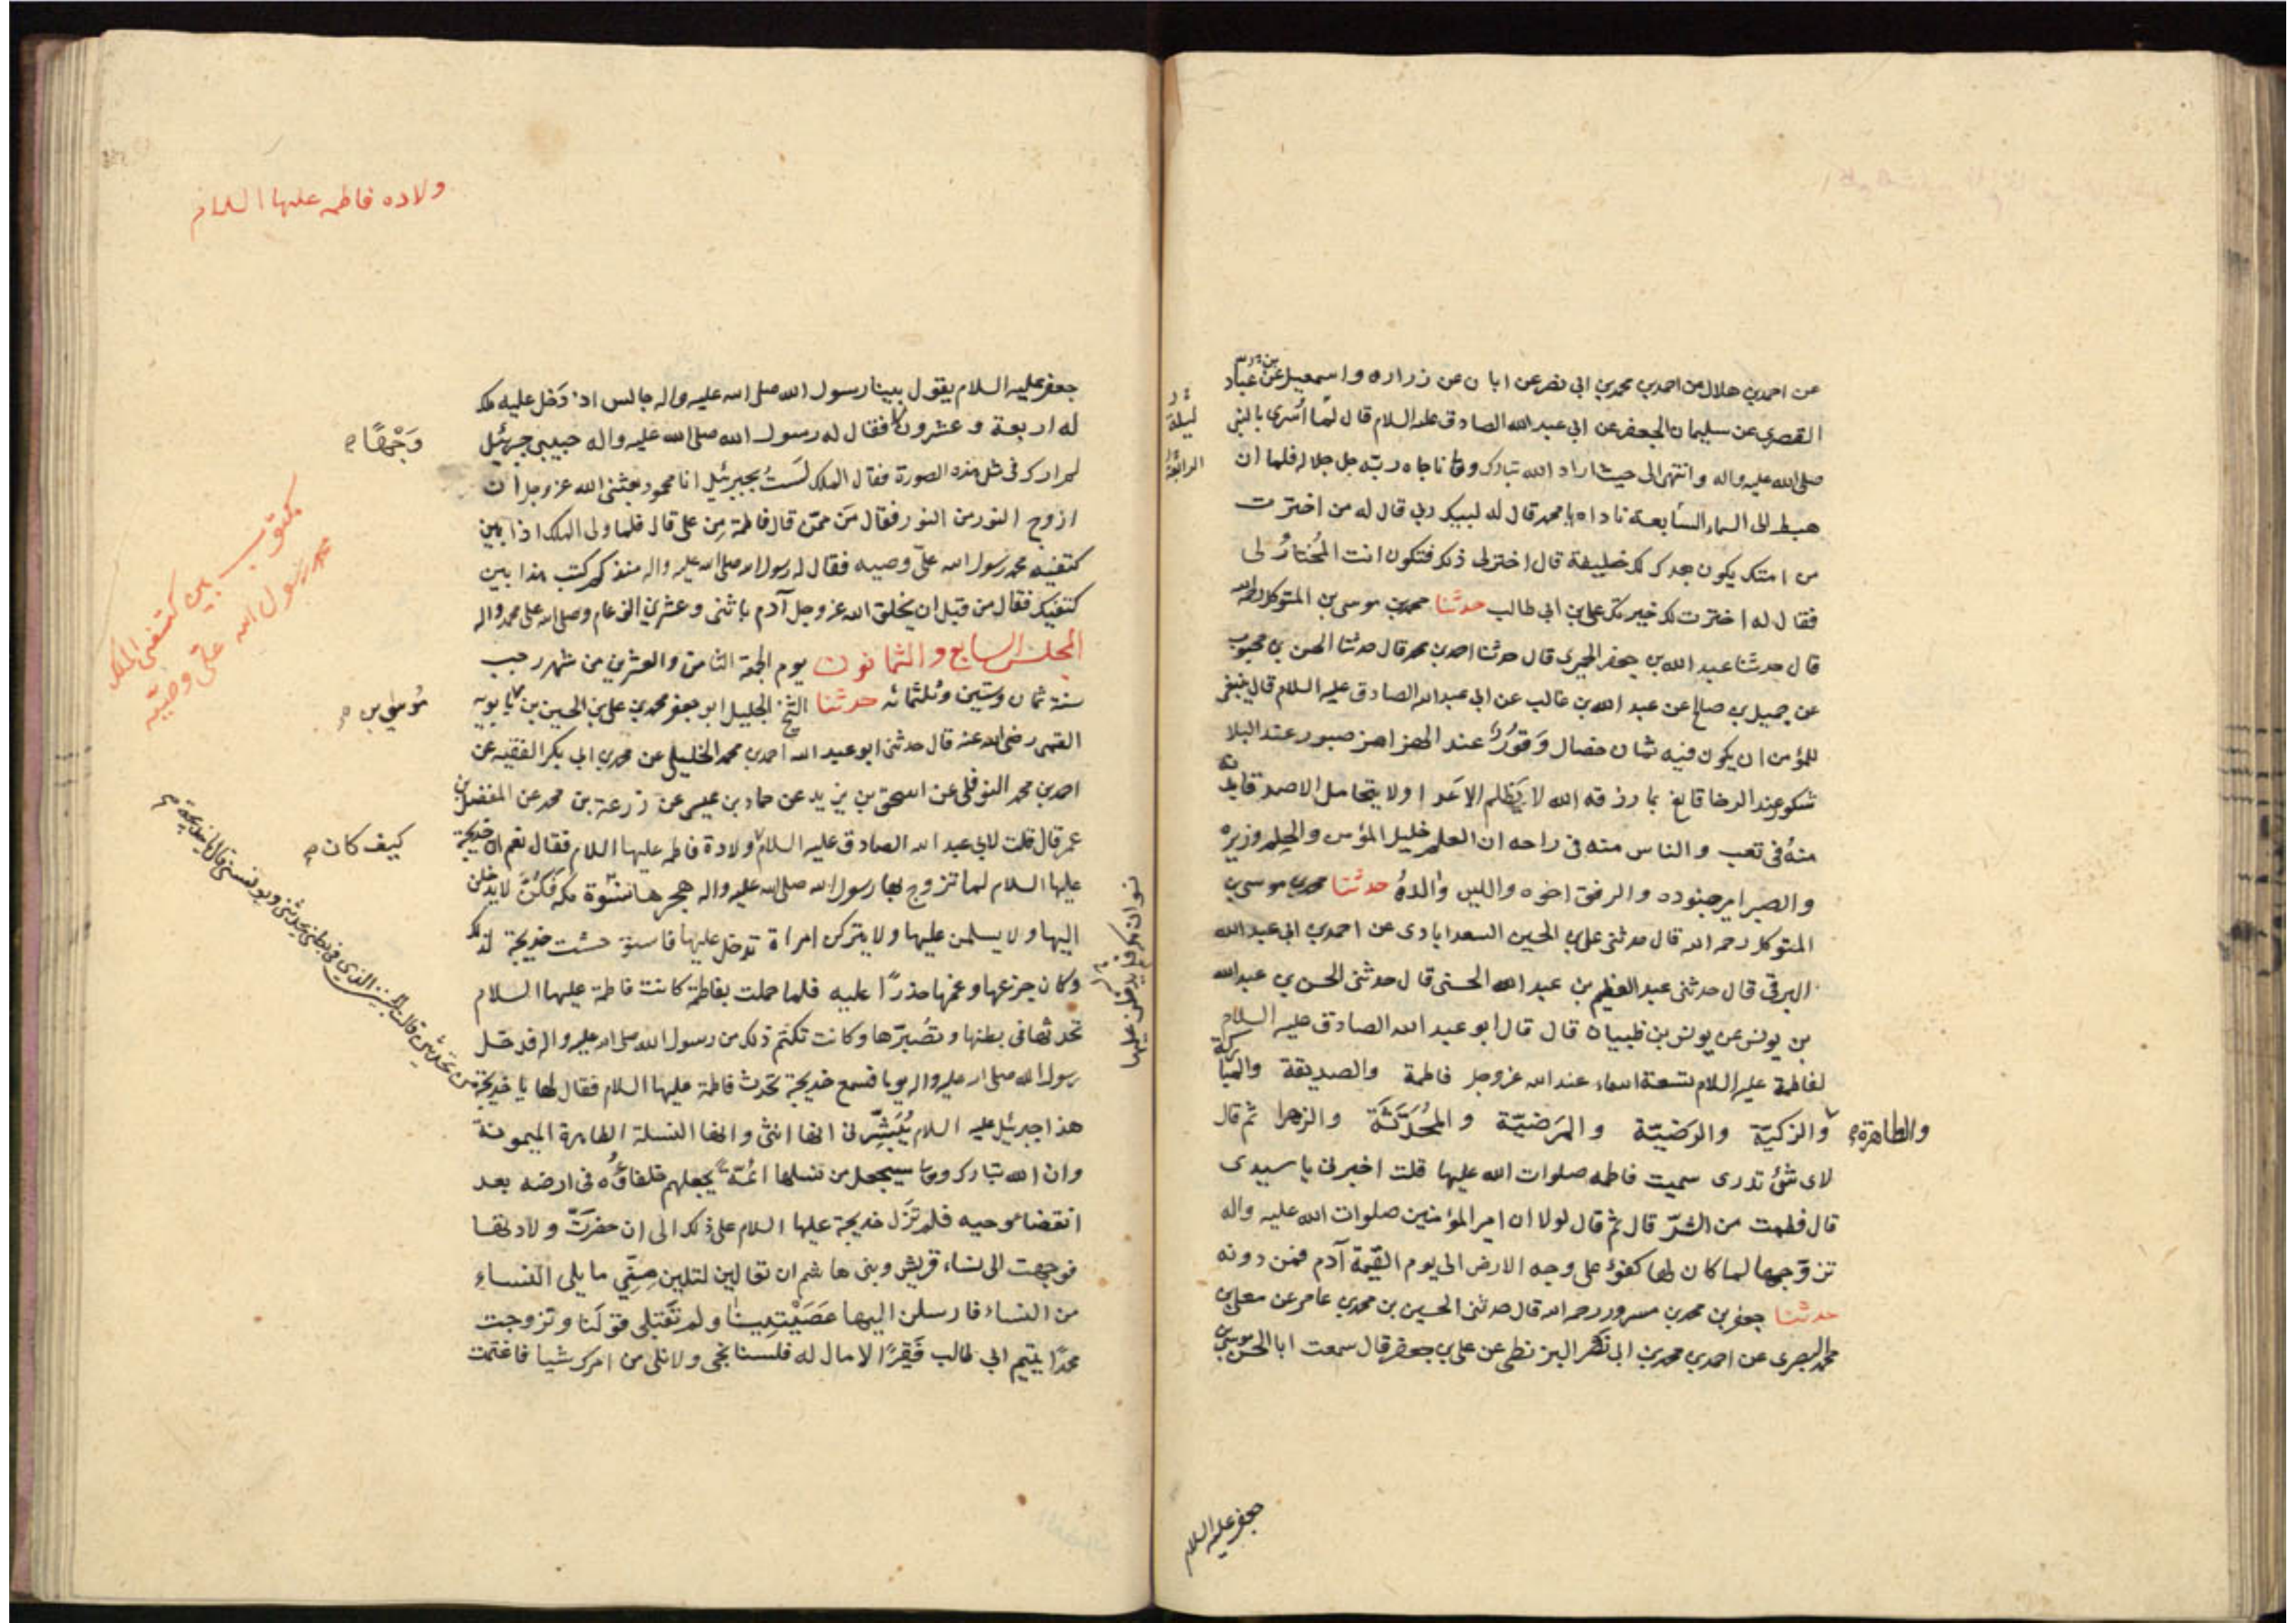 عن احمد بن هلال عن احمد بن محمد بن ابی نصر عن ابان عن زراره واسمعیل بن عباد
القصری عن سلیمان الجعفر عن ابی عبد الله الصادق علیه السلام قال لما اسری بالنبی
صلی الله علیه واله وانتهی الی حیث اراد الله تبارک وتعا ناجاه ربه جل جلاله فلما ان
هبط الی السماء السابعة ناداه یا محمد قال له لبیک ربی قال له من اخترت
من امتک یکون بعدک لک خلیفة قال اختر لی ذلک فتکون انت المُختارُ لی
فقال له اخترت لک خیرتک علی بن ابی طالب حدثنا محمد بن موسی بن المتوکل رحمه الله
قال حدثنا عبد الله بن جعفر الحمیری قال حدثنا احمد بن محمد قال حدثنا الحسن بن محبوب
عن جمیل بن صالح عن عبد الله بن غالب عن ابی عبد الله الصادق علیه السلام قال ینبغی
للمؤمن ان یکون فیه ثمان خصال وَقوُرٌ عند الهزاهز صبور عند البلا
شکور عند الرخا قانع بما رزقه الله لا یَظلم الاعدا ولا یتحامل الاصدقا بدنه
منهُ فی تعب والناس منه فی راحه ان العلم خلیل المؤمن والحِلم وزیره
والصبر امیر جنوده والرفق اخوه واللین والدهُ حدثنا محمد بن موسی بن
المتوکل رحمه الله قال حدثنی علی بن الحسین السعدابادی عن احمد بن ابی عبد الله
البرقی قال حدثنی عبد العظیم بن عبد الله الحسنی قال حدثنی الحسن بن عبد الله
بن یونس عن یونس بن ظبیان قال قال ابو عبد الله الصادق علیه السلام
لفاطمة علیها السلام تسعة اسماء عند الله عز وجل فاطمة والصدیقة والمبارکة
والطاهرة
والزکیّة والرَضیّة والمَرَضیّة والمُحَدَثَة والزهرا ثم قال
لای شئ تدری سمیت فاطمه صلوات الله علیها قلت اخبرنی یا سیدی
قال فطمت من الشرّ قال ثم قال لولا ان امیر المؤمنین صلوات الله علیه واله
تزوّجها لما کان لها کفوٌ علی وجه الارض الی یوم القیٰمة آدم فمن دونه
حدثنا جعفر بن محمد بن مسرور رحمه الله قال حدثنی الحسین بن محمد بن عامر عن معلی بن
محمد البصری عن احمد بن محمد بن ابی نصر البزنطی عن علی بن جعفر قال سمعت ابا الحسن موسی بن
لیلة
الرابعة
جعفر علیه السلام
ولاده فاطمه علیها السلام
جعفر علیه السلام یقول بینا رسول الله صلی الله علیه واله جالس اذ دَخل علیه ملک
له اربعة وعشرون فقال له رسول الله صلی الله علیه واله حبیبی جبرئیل
وَجْهًا
لم ارک فی مثل هذه الصورة فقال الملک لَستُ بجبرئیل انا محمود بعثنی الله عز وجل ان
ازوج النور من النور فقال مَن ممّن قال فاطمة مِن علی قال فلما ولی الملک اذا بین
کتفیه محمد رسول الله علیّ وصیه فقال له رسول الله صلی الله علیه واله منذ کم کتب هذا بین
کتفیک فقال من قبل ان یخلق الله عز وجل آدم باثنی وعشرین الف عام وصلی الله علی محمد واله
مکتوب بین کتفی الملک
محمد رسول الله علیّ وصیّه
المجلس السابع والثمانون یوم الجمعة الثامن والعشرین من شهر رجب
سنة ثمان وستین وثلثمائه حدثنا الشیخ الجلیل ابو جعفر محمد بن علی بن الحسین بن بابویه
مُوسی بن
القمی رضی الله عنه قال حدثنی ابو عبد الله احمد بن محمد الخلیلی عن محمد بن ابی بکر الفقیه عن
احمد بن محمد النوفلی عن اسحق بن یزید عن حماد بن عیسی عن زرعة بن محمد عن المفضل بن
عمر قال قلت لابی عبد الله الصادق علیه السلام ولادة فاطمه علیها السلام فقال نعم ان خدیجة
کیف کان
علیها السلام لما تزوج بها رسول الله صلی الله علیه واله هجرها نسُوة مکه فکُنّ لا یدخلن
الیها ولا یسلمن علیها ولا یترکن امراة تدخل علیها فاستوحشت خدیجة لذلک
وکان جزعها وغمها حذرًا علیه فلما حملت بفاطمة کانت فاطمة علیها السلام
تحدثها فی بطنها وتُصَبرّها وکانت تکتم ذلک من رسول الله صلی الله علیه واله فدخل
رسول الله صلی الله علیه واله یوما فسمع خدیجة تحدث فاطمة علیها السلام فقال لها یا خدیجة
من تحدثین قالت الجنین الذی فی بطنی یحدثنی ویونسنی قال یا خدیجة
هذا جبرئیل علیه السلام یُبَشّرنی انها انثی وانها النسلة الطاهرة المیمونة
وان الله تبارک وتعا سیجعل من نسلها ائمّة یجعلهم خلفاؤُه فی ارضه بعد
انقضاء وحیه فلم تَزَل خدیجة علیها السلام علی ذلک الی ان حضرَتّ ولادتها
فوجهت الی نساء قریش وبنی هاشم ان تعالین لتلین مِنّی ما یلی النساء
من النساء فارسلن الیها عَصَیْتِینا ولم تَقَبلی قولَنا وتزوجت
محمدًا یتیم ابی طالب فَقِیرًا لا مال له فلسنا نجی ولا نلی من امرک شیا فاغتمت